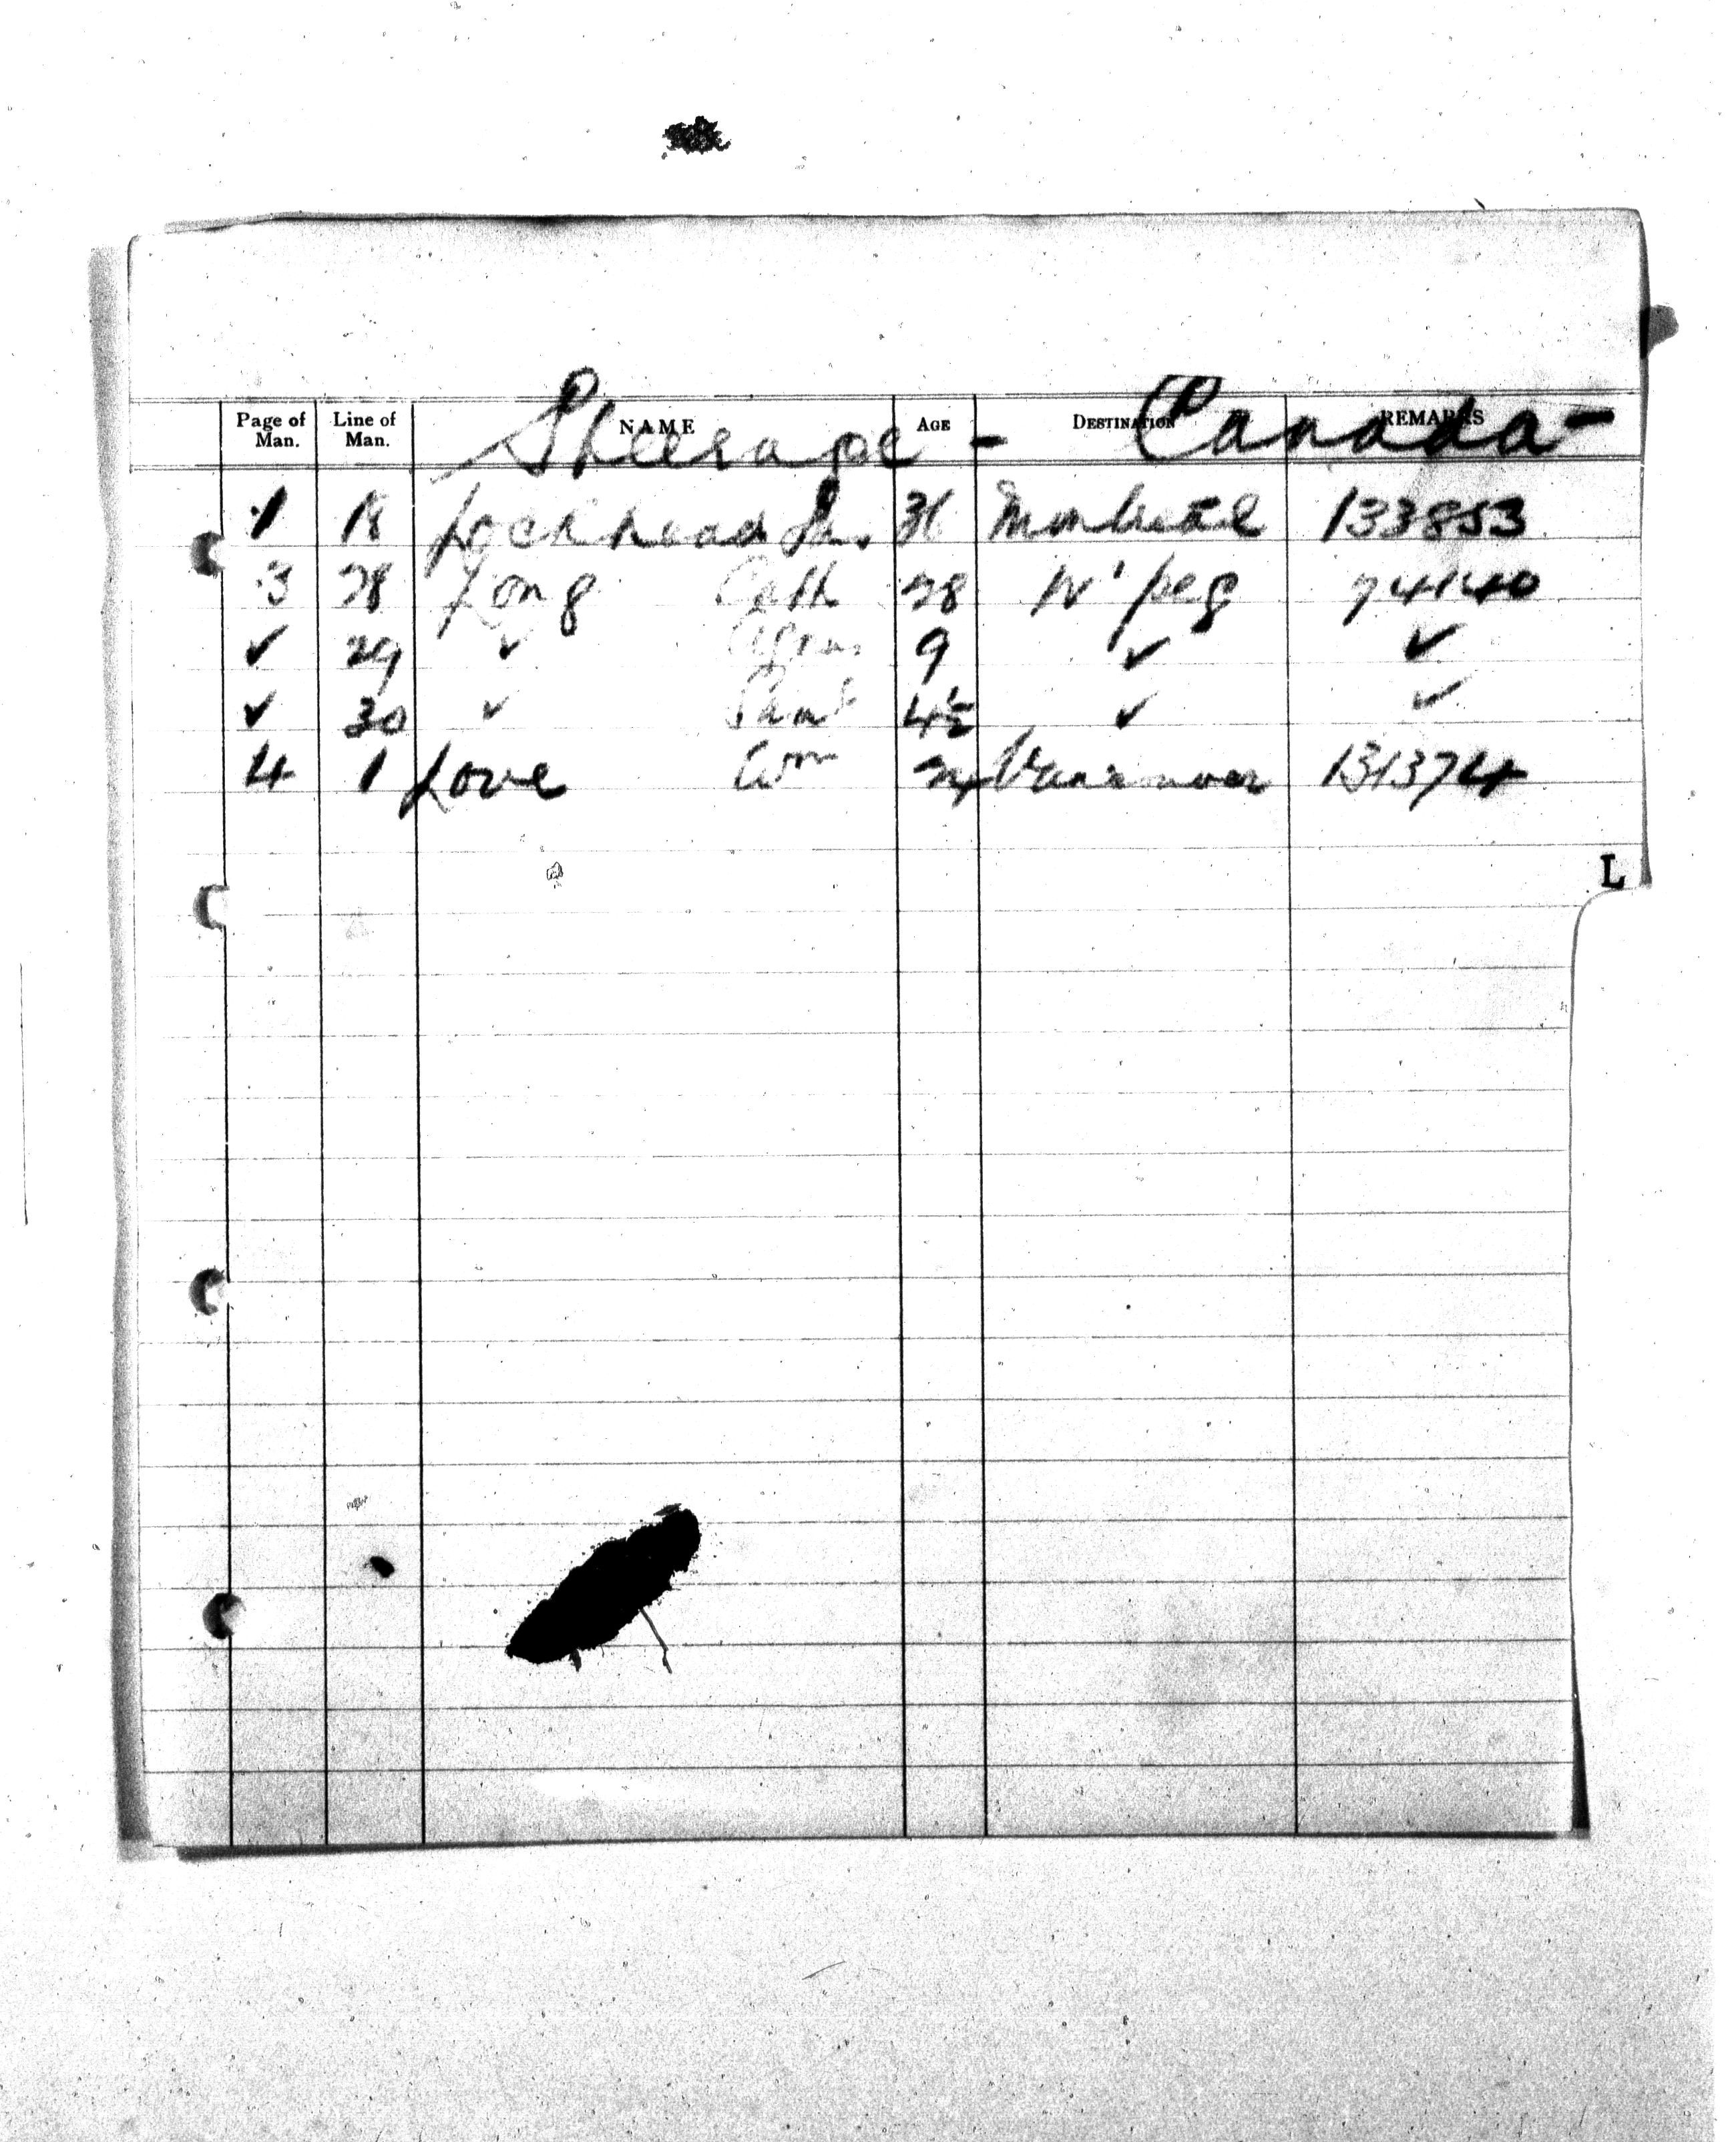 Page of Man. Line of Man. NAME AGE DESTINATION REMARKS
Steerage - Canada -
1 18 Lockhead Jas. 31 Montreal 133853
3 28 Long Cath 28 W'peg 74140
✓ 29 ✓ Agnes 9 ✓ ✓
✓ 30 ✓ 4½ ✓ ✓
4 1 Love Wm 24 Vancouver 131374
L